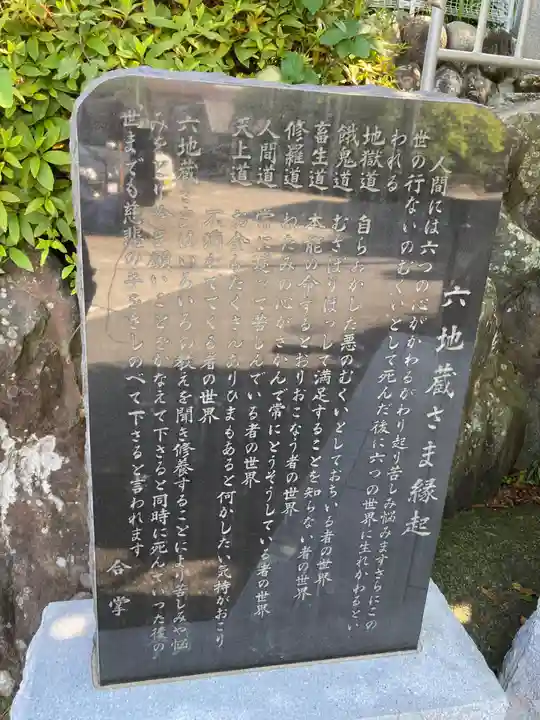 六地蔵さま縁起
人間には六つの心がかわるがわり起り苦しみ悩みますさらにこの
世の行ないのむくいとして死んだ後に六つの世界に生れかわるとい
われる
地獄道 自らおかした悪のむくいとしておちいる者の世界
餓鬼道 むさぼりほっして満足することを知らない者の世界
畜生道 本能の命ずるとおりおこなう者の世界
修羅道 ねたみの心がさかんで常にとうそうしている者の世界
人間道 常に迷って苦しんでいる者の世界
天上道 お金もたくさんありひまもあると何かしたい気持がおこり
不満をもてくる者の世界
六地蔵さまはいろいろの教えを聞き修養することにより苦しみや悩
みをとり を願いごとをかなえて下さると同時に死んでいった後の
世までも慈悲の手をさしのべて下さると言われます
合掌